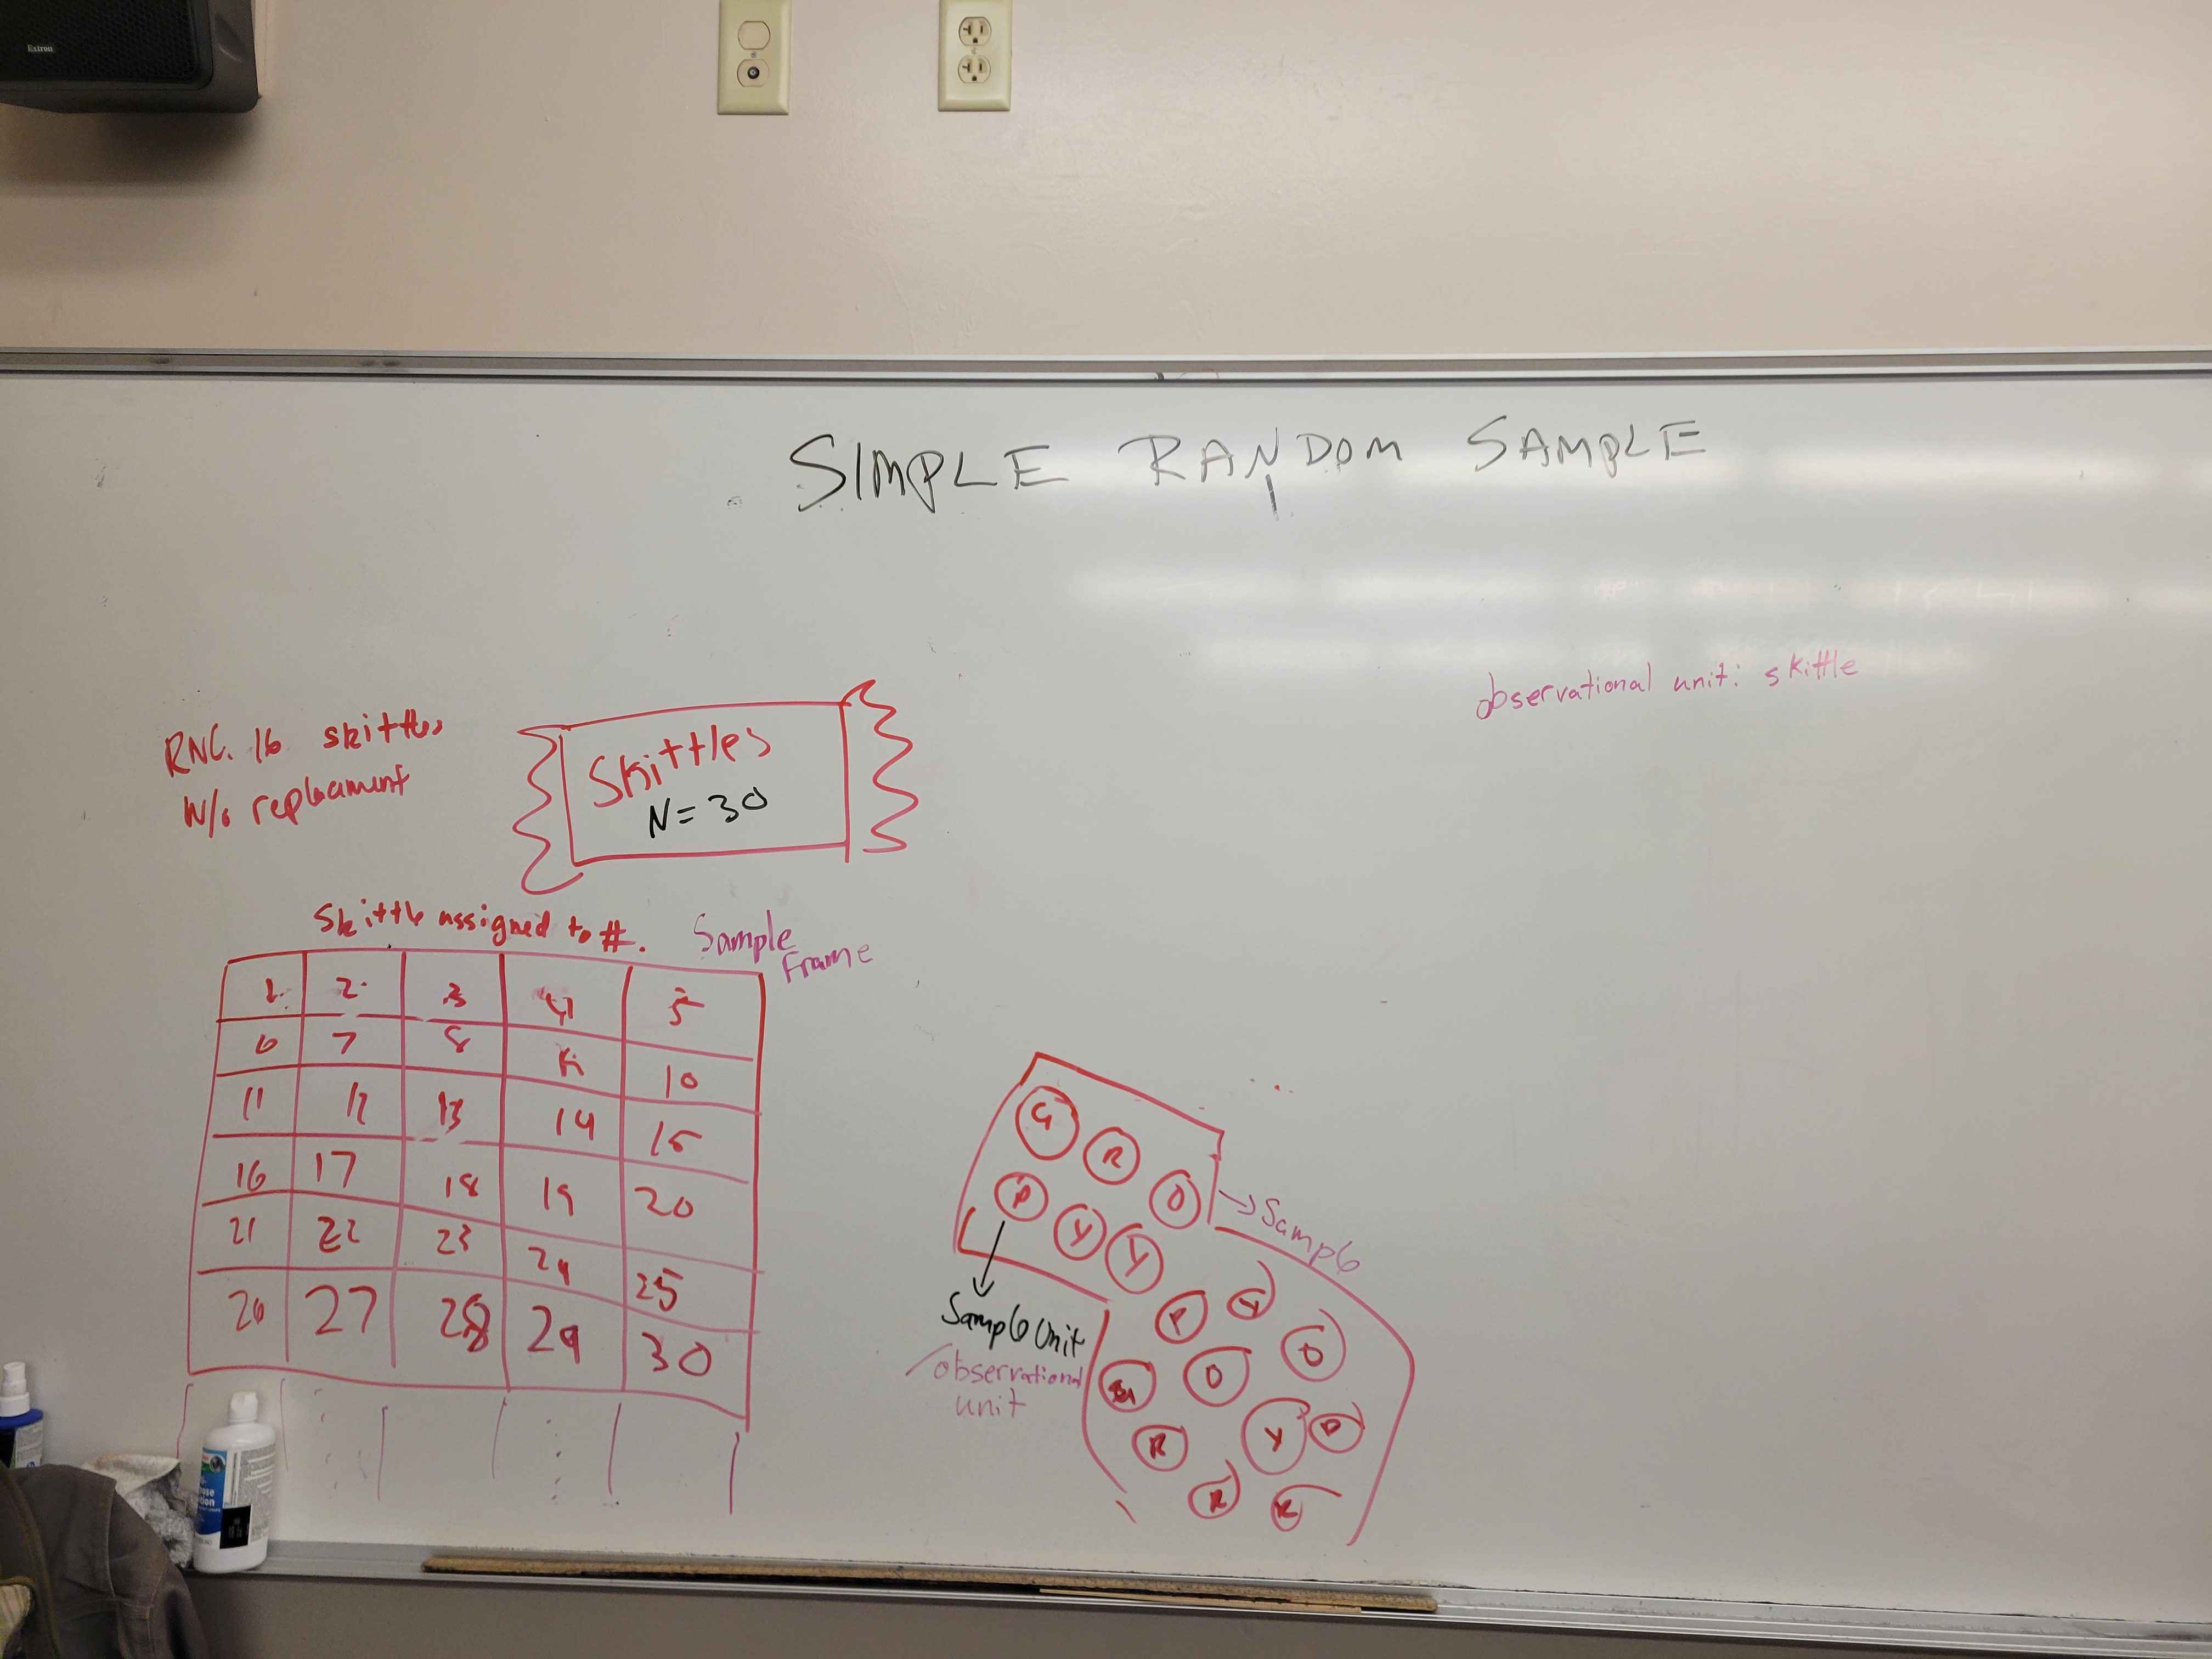 Extron
SIMPLE RANDOM SAMPLE
observational unit: skittle
RNG. 16 skittles
w/o replacement
Skittles
N=30
Skittle assigned to #.
Sample
Frame
1 2 3 4 5
6 7 8 10
11 12 13 14 15
16 17 18 19 20
21 22 23 24 25
26 27 28 29 30
G R O
P Y Y
→ Sample
P Y O
O
R Y P
R R
Sample Unit
/observational
unit